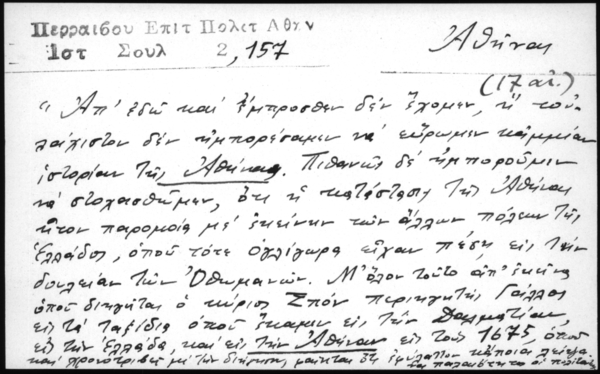 Περραιβου Επιτ Πολιτ Αθην
Ιστ Σουλ 2, 157
Ἀθήναι
(17 αἰ.)
"Ἀπ' ἐδῶ καὶ ἔμπροσθεν δὲν ἔχομεν, ἢ τοὐ-
λάχιστον δὲν ἠμπορέσαμεν νὰ εὕρωμεν κᾀμμίαν
ἱστορίαν τῆς Ἀθήνας. Πιθανῶς δὲ ἠμποροῦμεν
νὰ στοχασθῶμεν, ὅτι ἡ κατάστασις τῆς Ἀθήνας
ἦτον παρομοία μὲ ἐκείνην τῶν ἄλλων πόλεων τῆς
Ἑλλάδος, ὁποῦ τότε ὀγλίγωρα εἶχαν πέσῃ εἰς τὴν
δουλείαν τῶν Ὀθωμανῶν. Μ' ὅλον τοῦτο ἀπ' ἐκεῖνα
ὁποῦ διηγεῖται ὁ κύριος Σπόν περιηγητὴς Γάλλος
εἰς τὰ ταξίδια ὁποῦ ἔκαμεν εἰς τὴν Δαλματίαν,
εἰς τὴν Ἑλλάδα, καὶ εἰς τὴν Ἀθήναν εἰς τοὺς 1675, ὁποῦ
καὶ μὲ τὴν διήγησιν, φαίνεται ὅτι ἐφύλαττον κᾄποια λείψανα